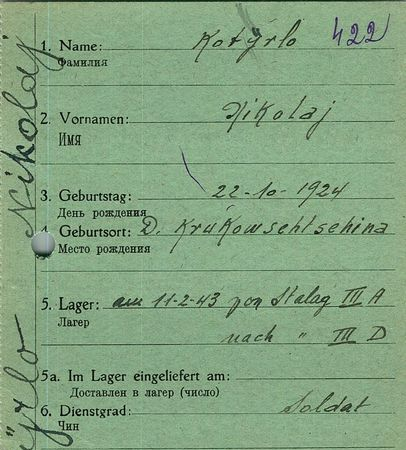 422
1. Name: Kotyrlo
Фамилия
2. Vornamen: Nikolaj
Имя
3. Geburtstag: 22-10-1924
День рождения
4. Geburtsort: D. Krukowschtschina
Место рождения
5. Lager: am 11-2-43 von Stalag III A
Лагер
nach " III D
5a. Im Lager eingeliefert am:
Доставлен в лагер (число)
6. Dienstgrad: Soldat
Чин
Nikolaj